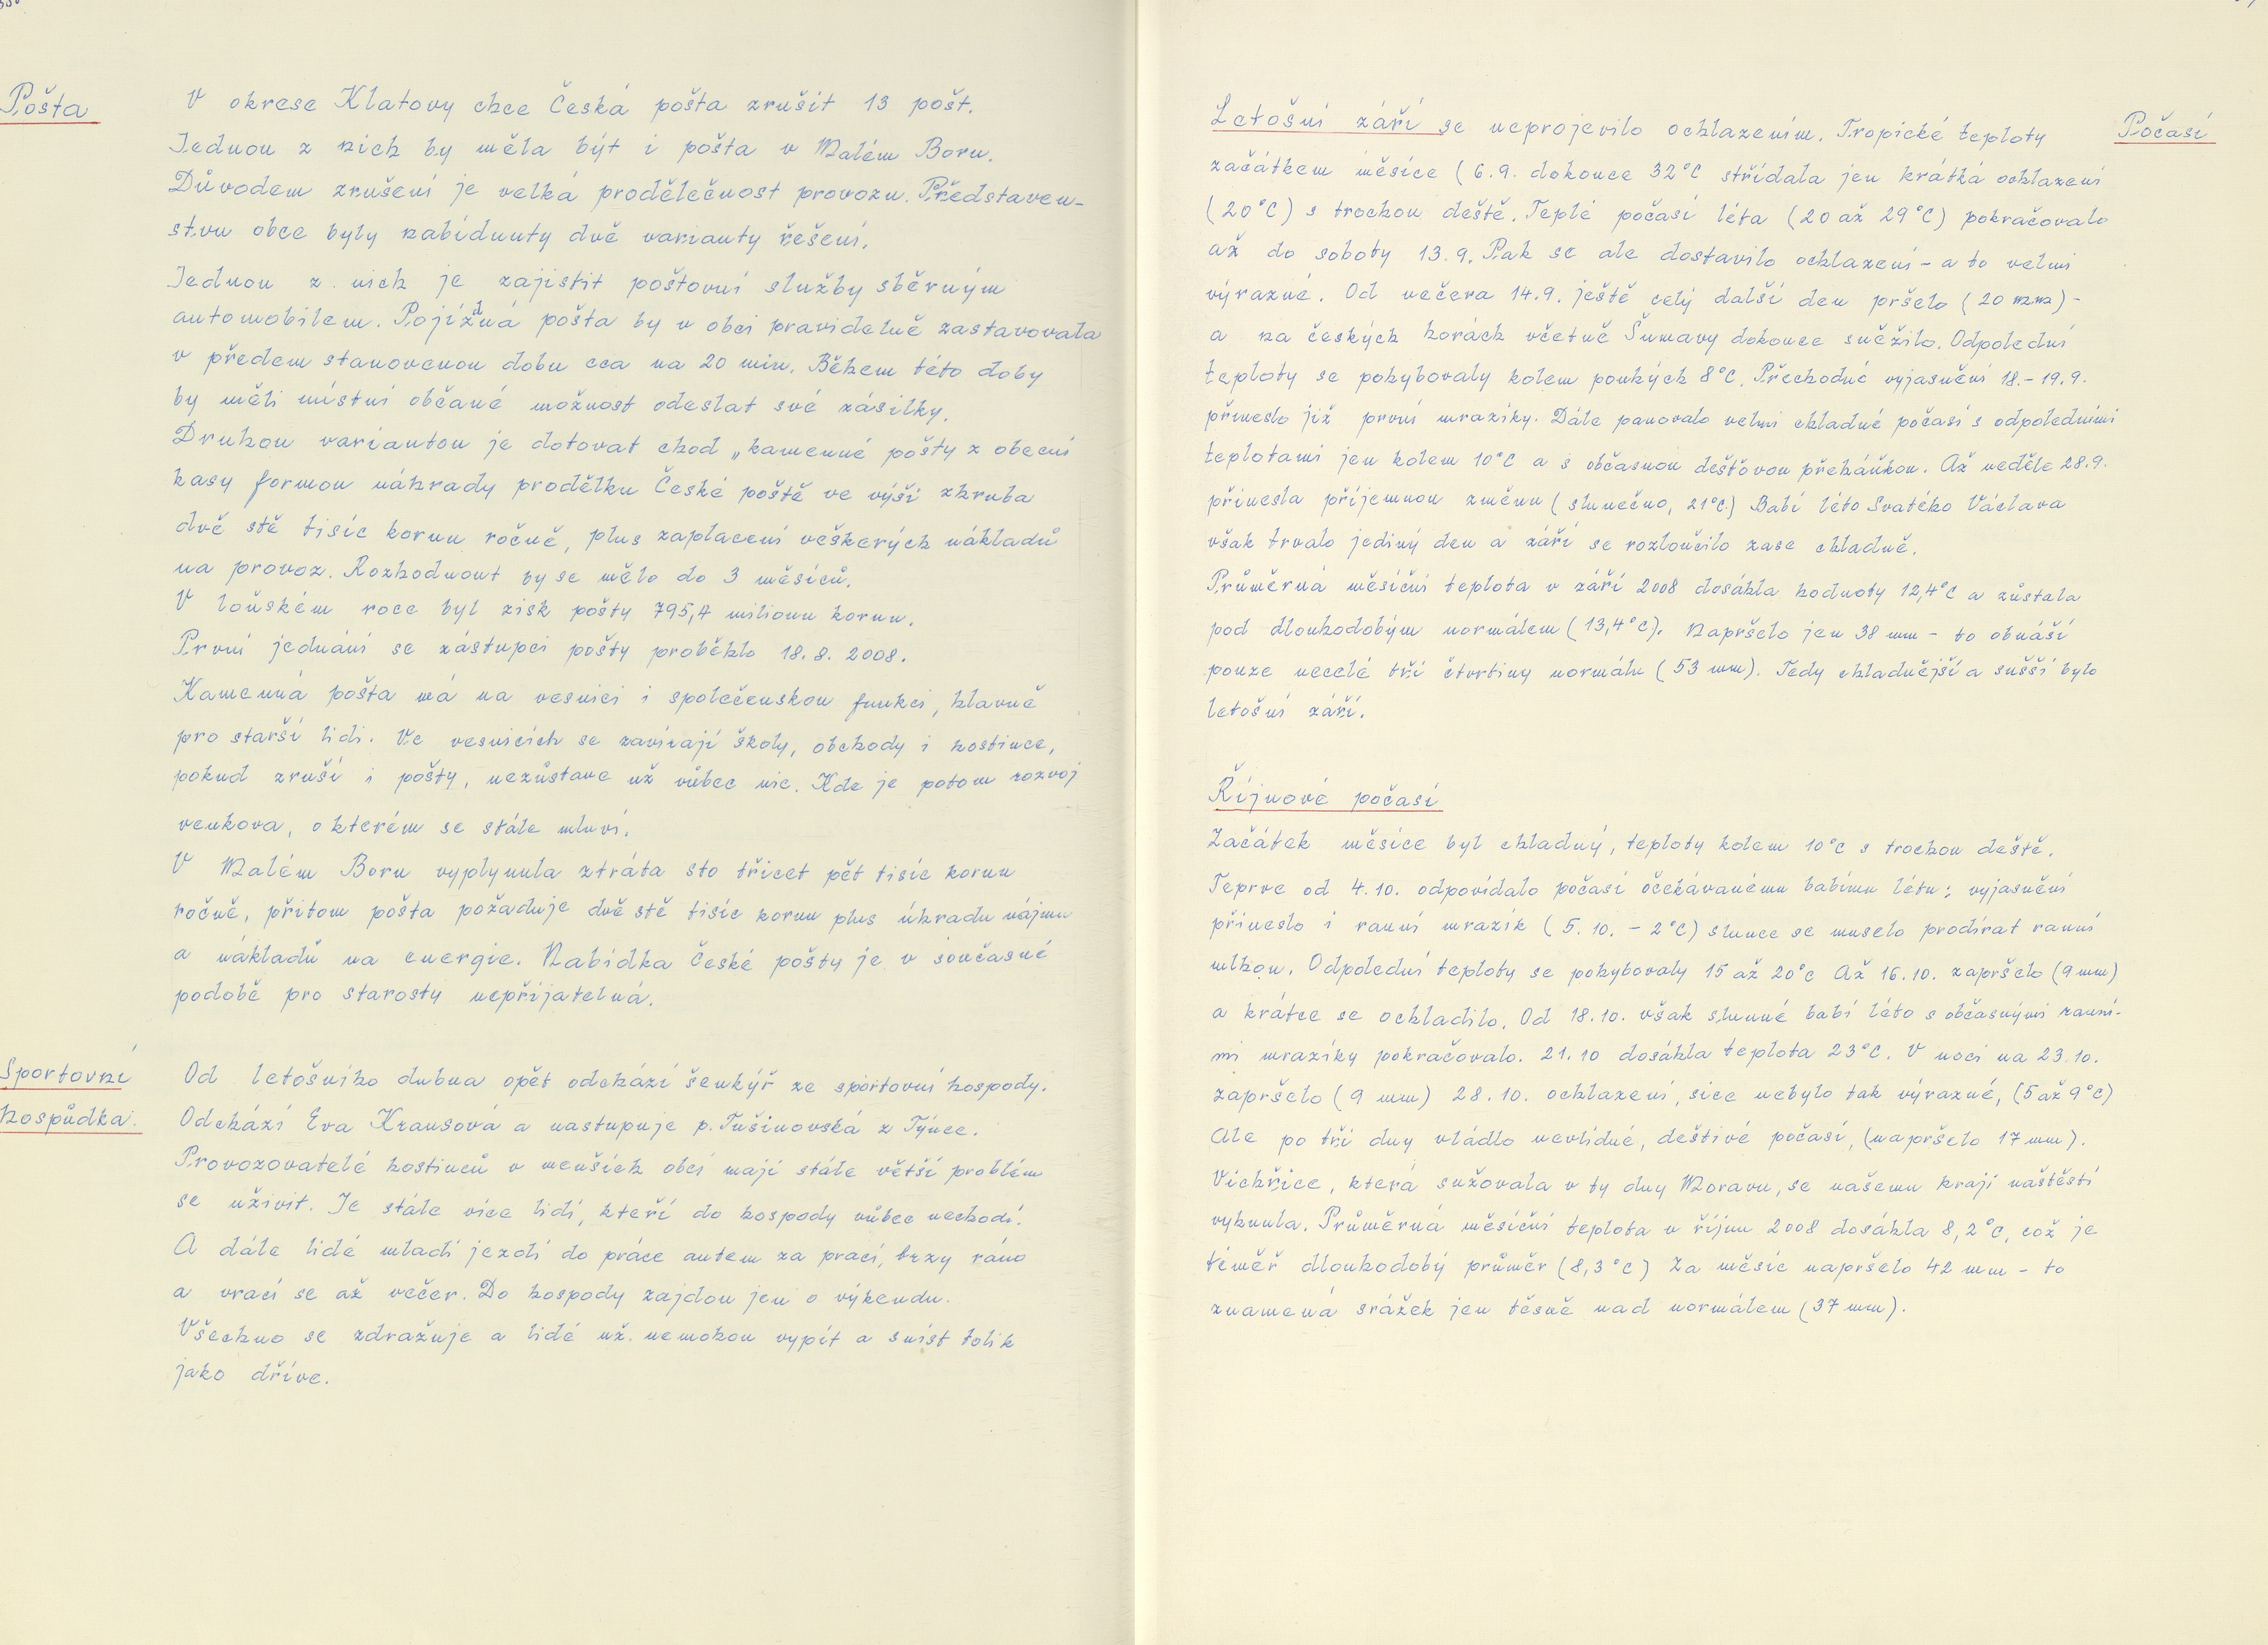 Pošta
V okrese Klatovy chce Česká pošta zrušit 13 pošt.
Jednou z nich by měla být i pošta v Malém Boru.
Důvodem zrušení je velká prodělečnost provozu. Představen-
stvu obce byly nabídnuty dvě varianty řešení.
Jednou z nich je zajistit poštovní služby sběrným
automobilem. Pojízdná pošta by v obci pravidelně zastavovala
v předem stanovenou dobu cca na 20 min. Během této doby
by měli místní občané možnost odeslat své zásilky.
Druhou variantou je dotovat chod „kamenné pošty z obecní
kasy formou náhrady prodělku České poště ve výši zhruba
dvě stě tisíc korun ročně, plus zaplacení veškerých nákladů
na provoz. Rozhodnout by se mělo do 3 měsíců.
V loňském roce byl zisk pošty 795,4 milionu korun.
První jednání se zástupci pošty proběhlo 18.8. 2008.
Kamenná pošta má na vesnici i společenskou funkci, hlavně
pro starší lidi. Ve vesnicích se zavírají školy, obchody i hostince,
pokud zruší i pošty, nezůstane už vůbec nic. Kde je potom rozvoj
venkova, o kterém se stále mluví.
V Malém Boru vyplynula ztráta sto třicet pět tisíc korun
ročně, přitom pošta požaduje dvě stě tisíc korun plus úhradu nájmu
a nákladů na energie. Nabídka České pošty je v současné
podobě pro starosty nepřijatelná.
Sportovní
hospůdka.
Od letošního dubna opět odchází šenkýř ze sportovní hospody.
Odchází Eva Krausová a nastupuje p. Tušinovská z Týnce.
Provozovatelé hostinců v menších obcí mají stále větší problém
se uživit. Je stále více lidí, kteří do hospody vůbec nechodí.
A dále lidé mladí jezdí do práce autem za prací, brzy ráno
a vrací se až večer. Do hospody zajdou jen o výkendu.
Všechno se zdražuje a lidé už nemohou vypít a sníst tolik
jako dříve.
Počasí
Letošní září se neprojevilo ochlazením. Tropické teploty
začátkem měsíce (6.9. dokonce 32°C střídala jen krátká ochlazení
(20°C) s trochou deště. Teplé počasí léta (20 až 29°C) pokračovalo
až do soboty 13.9. Pak se ale dostavilo ochlazení - a to velmi
výrazné. Od večera 14.9. ještě celý další den pršelo (20 mm) -
a na českých horách včetně Šumavy dokonce sněžilo. Odpolední
teploty se pohybovaly kolem pouhých 8°C. Přechodné vyjasnění 18.-19.9.
přineslo již první mrazíky. Dále panovalo velmi chladné počasí s odpoledními
teplotami jen kolem 10°C a s občasnou dešťovou přeháňkou. Až neděle 28.9.
přinesla příjemnou změnu (slunečno, 21°C.) Babí léto Svatého Václava
však trvalo jediný den a září se rozloučilo zase chladně.
Průměrná měsíční teplota v září 2008 dosáhla hodnoty 12,4°C a zůstala
pod dlouhodobým normálem (13,4°C). Napršelo jen 38 mm - to obnáší
pouze necelé tři čtvrtiny normálu (53 mm). Tedy chladnější a sušší bylo
letošní září.
Říjnové počasí
Začátek měsíce byl chladný, teploty kolem 10°C s trochou deště.
Teprve od 4.10. odpovídalo počasí očekávanému babímu létu; vyjasnění
přineslo i ranní mrazík (5.10. - 2°C) slunce se muselo prodírat ranní
mlhou. Odpolední teploty se pohybovaly 15 až 20°C Až 16.10. zapršelo (9 mm)
a krátce se ochladilo. Od 18.10. však slunné babí léto s občasnými ranní-
mi mrazíky pokračovalo. 21.10 dosáhla teplota 23°C. V noci na 23.10.
zapršelo (9 mm) 28.10. ochlazení, sice nebylo tak výrazné, (5 až 9°C)
Ale po tři dny vládlo nevlídné, deštivé počasí, (napršelo 17 mm).
Vichřice, která sužovala v ty dny Moravu, se našemu kraji naštěstí
vyhnula. Průměrná měsíční teplota v říjnu 2008 dosáhla 8,2°C, což je
téměř dlouhodobý průměr (8,3°C) Za měsíc napršelo 42 mm - to
znamená srážek jen těsně nad normálem (37 mm).